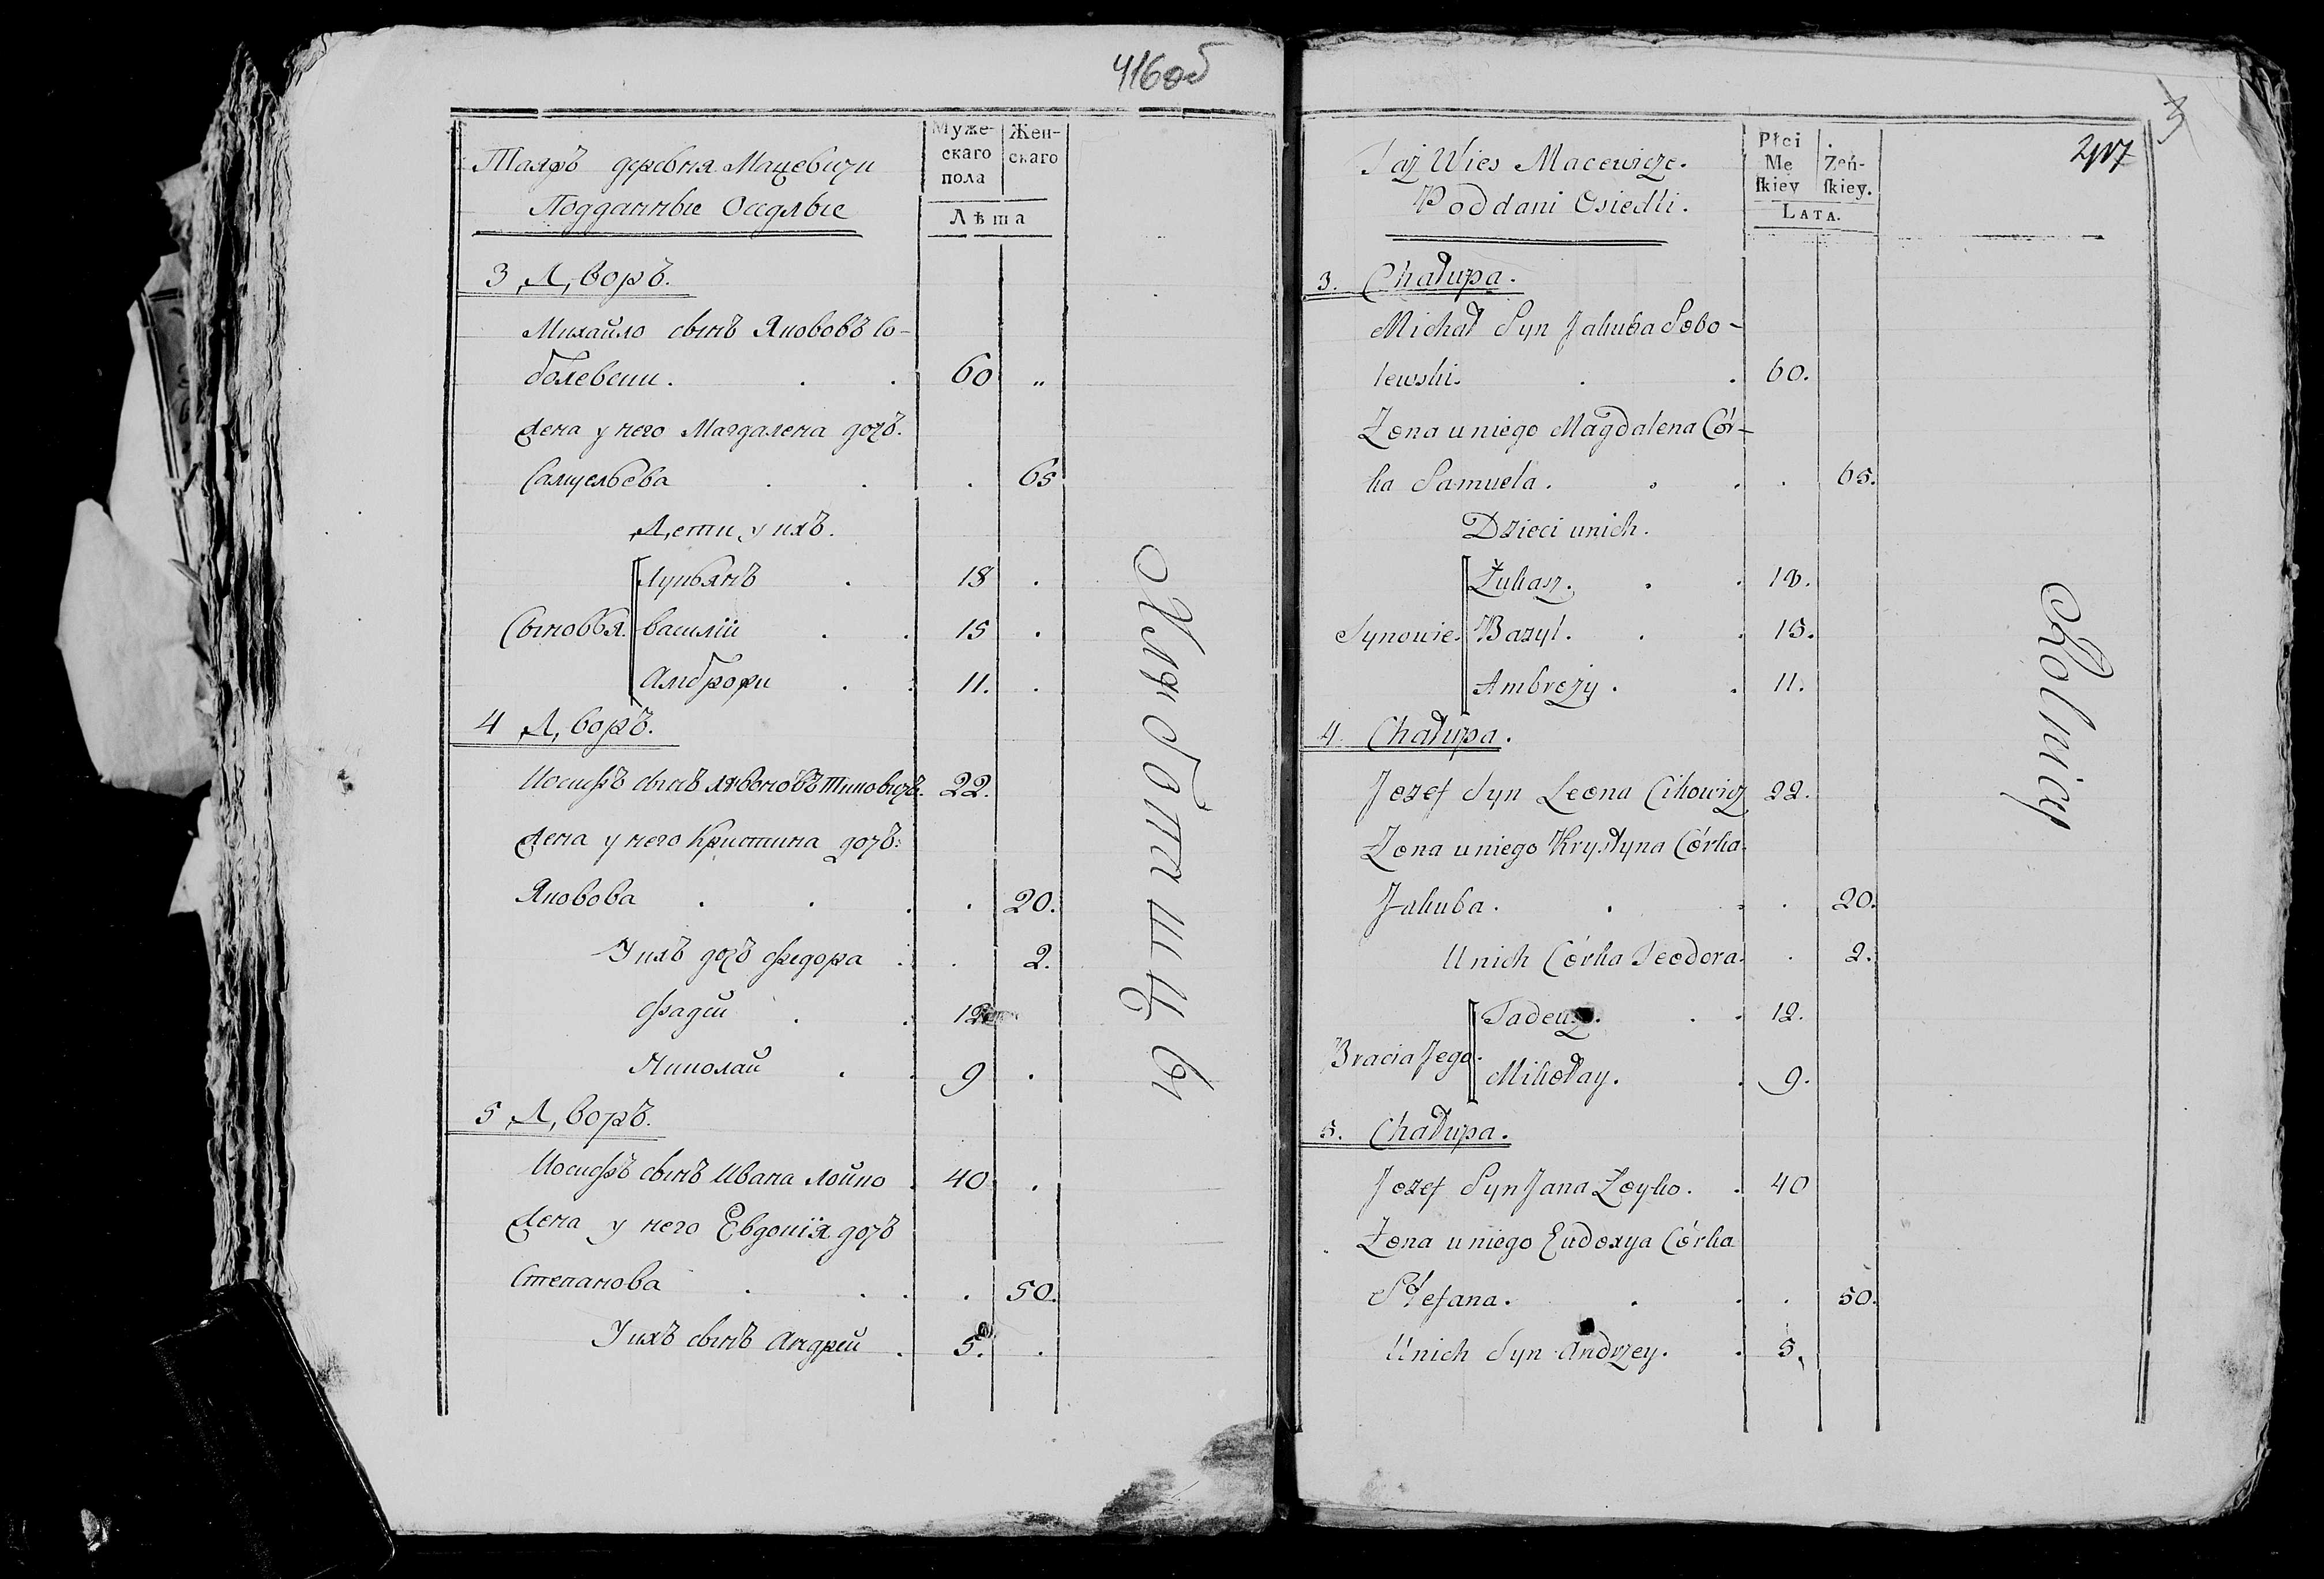 416об
Таяжъ деревня Мацевичи
Подданные Оседлые
Муже-
скаго
пола
Жен-
скаго
Лѣта
3 Дворъ.
Михайло сынъ Якововъ Со-
болевски. 60 "
Жена у него Магдалена дочь.
Самуельева 65
Дети у ихъ.
Лукьянъ 18
Сыновья. Василій 15
Амброжи 11.
4 Дворъ.
Иосифъ сынъ 22.
Жена у него Кристина дочь:
Яковова 20.
У ихъ дочь Федора 2.
Фадей 12
Николай 9
5 Дворъ.
Иосифъ сынъ Ивана Лойко 40
Жена у него Евдокія дочь
Степанова 50.
У ихъ сынъ Андрей 5.
3
Taż Wies Macewicze.
Poddani Osiedli.
Płci
Mę
ſkiey
Żeń-
ſkiey.
LATA.
3. Chałupa.
Michał Syn Jakuba Sobo-
lewski. 60.
Żona u niego Magdalena Cór-
ka Samuela. 65.
Dzieci unich.
Łukasz. 18.
Synowie. Bazyl. 15.
Ambrozy. 11.
4. Chałupa.
Jozef Syn Leona Cikowicz 22.
Żona u niego Krystyna Córka
Jakuba. 20.
Unich Córka Teodora. 2.
Tadeusz. 12.
Bracia Jego.
Mikołay. 9.
5. Chałupa.
Jozef Syn Jana Łoyko. 40
Żona u niego Eudoxya Córka
Stefana. 50.
Unich Syn Andrzey. 5.
Rolnicy